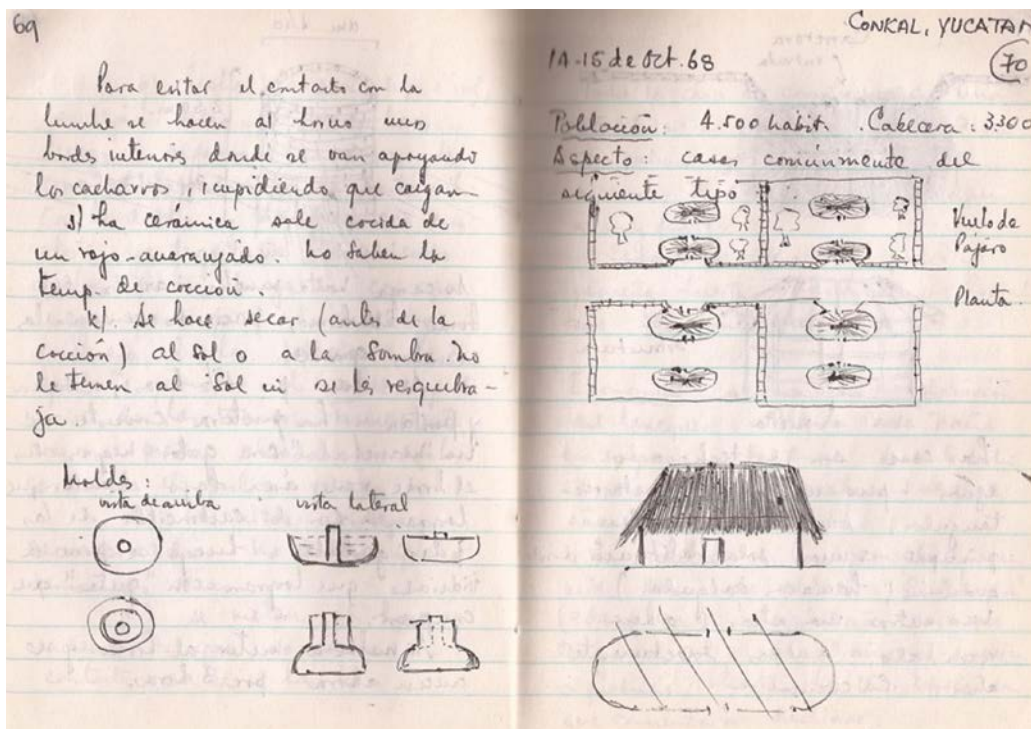 69
Para evitar el contacto con la
lumbre se hacen al horno unos
bordes interiores donde se van apoyando
los cacharros, impidiendo que caigan
j) La cerámica sale cocida de
un rojo-anaranjado. No saben la
temp. de cocción.
k). Se hace secar (antes de la
cocción) al sol o a la sombra. No
le temen al sol ni se les resquebra-
ja
Moldes:
vista de arriba vista lateral
CONKAL, YUCATAN
70
14-15 de Oct. 68
Población: 4.500 habit. Cabecera: 3300
Aspecto: casas comúnmente del
siguiente tipo:
Vuelo de
Pájaro
Planta.